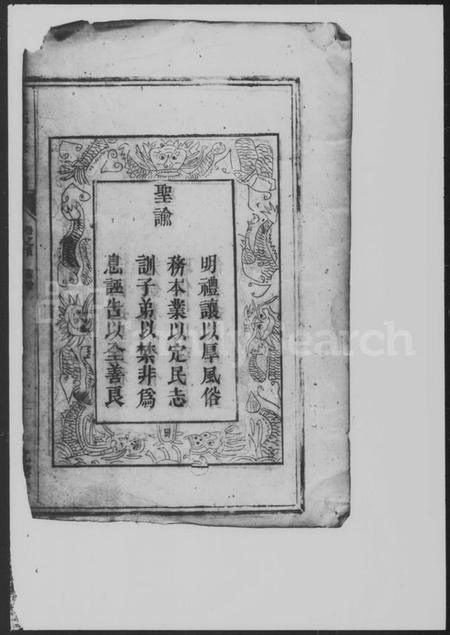 聖諭
明禮讓以厚風俗
務本業以定民志
訓子弟以禁非為
息誣告以全善良